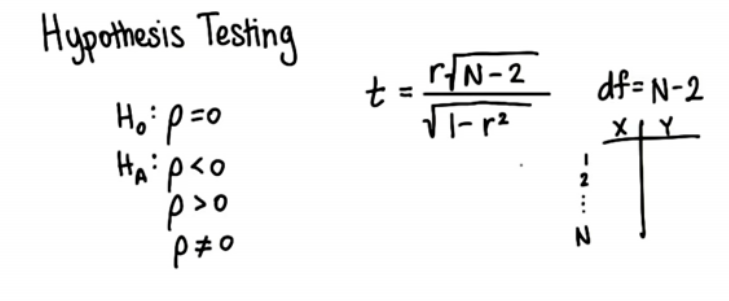 Hypothesis Testing
H₀: ρ=0
H_A: ρ<0
ρ>0
ρ≠0
t = r√N-2 / √1-r²
df=N-2
X Y
1
2
⋮
N